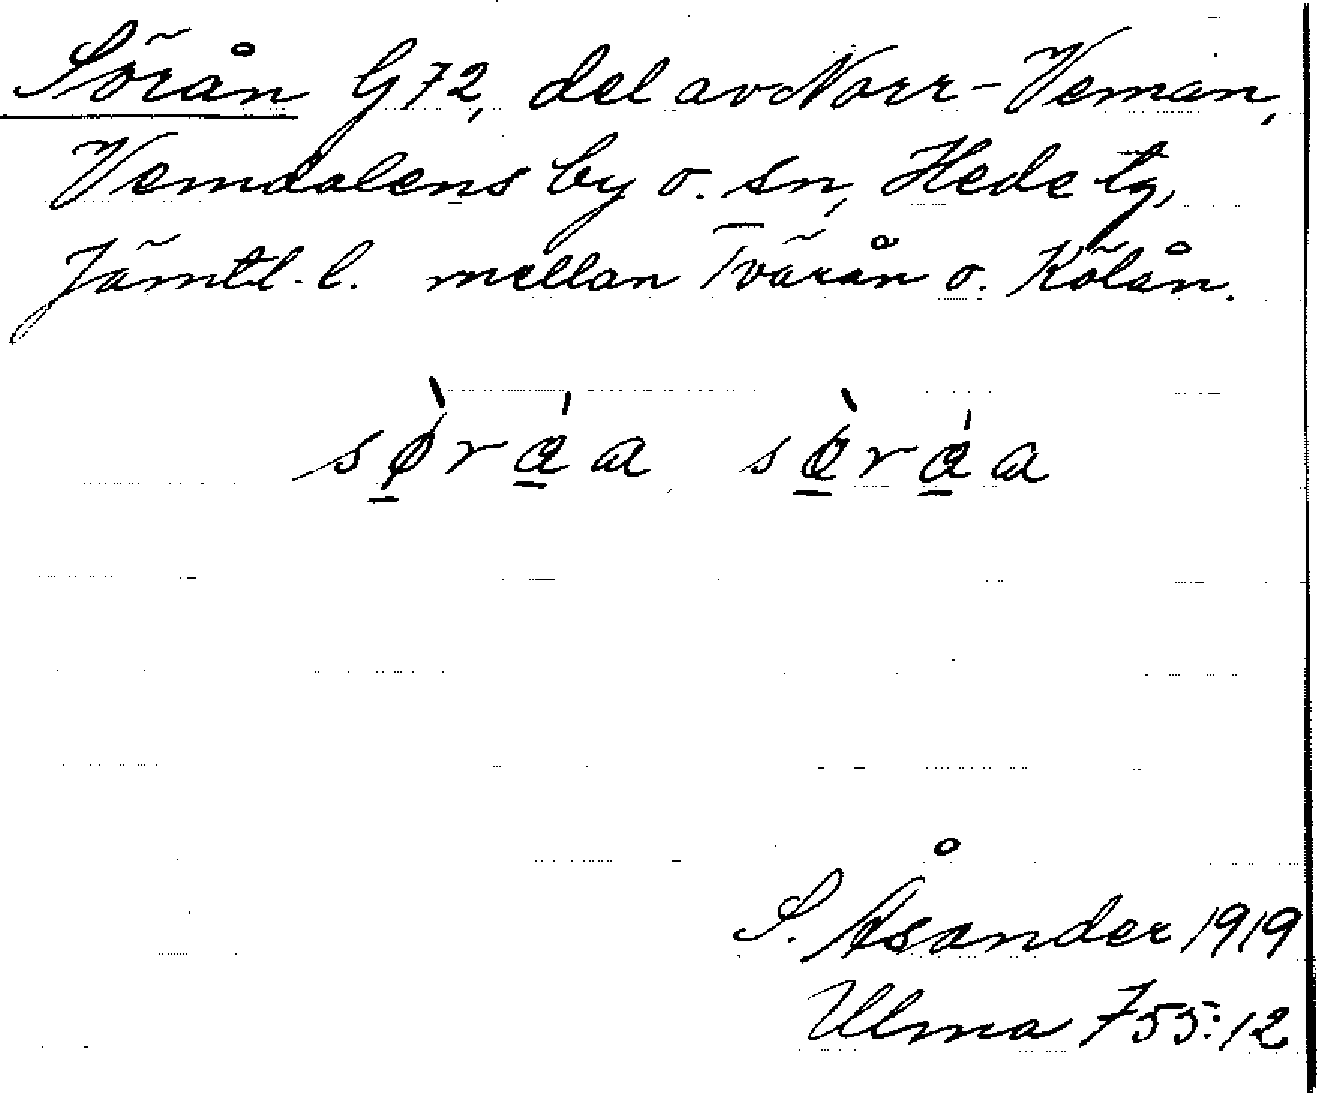 Sörån G72, del av Norr-Veman,
Vemdalens by o. sn, Hede tg,
Jämtl. l. mellan Tvärån o. Kölån.
S. Åsander 1919
Ulma 755:12